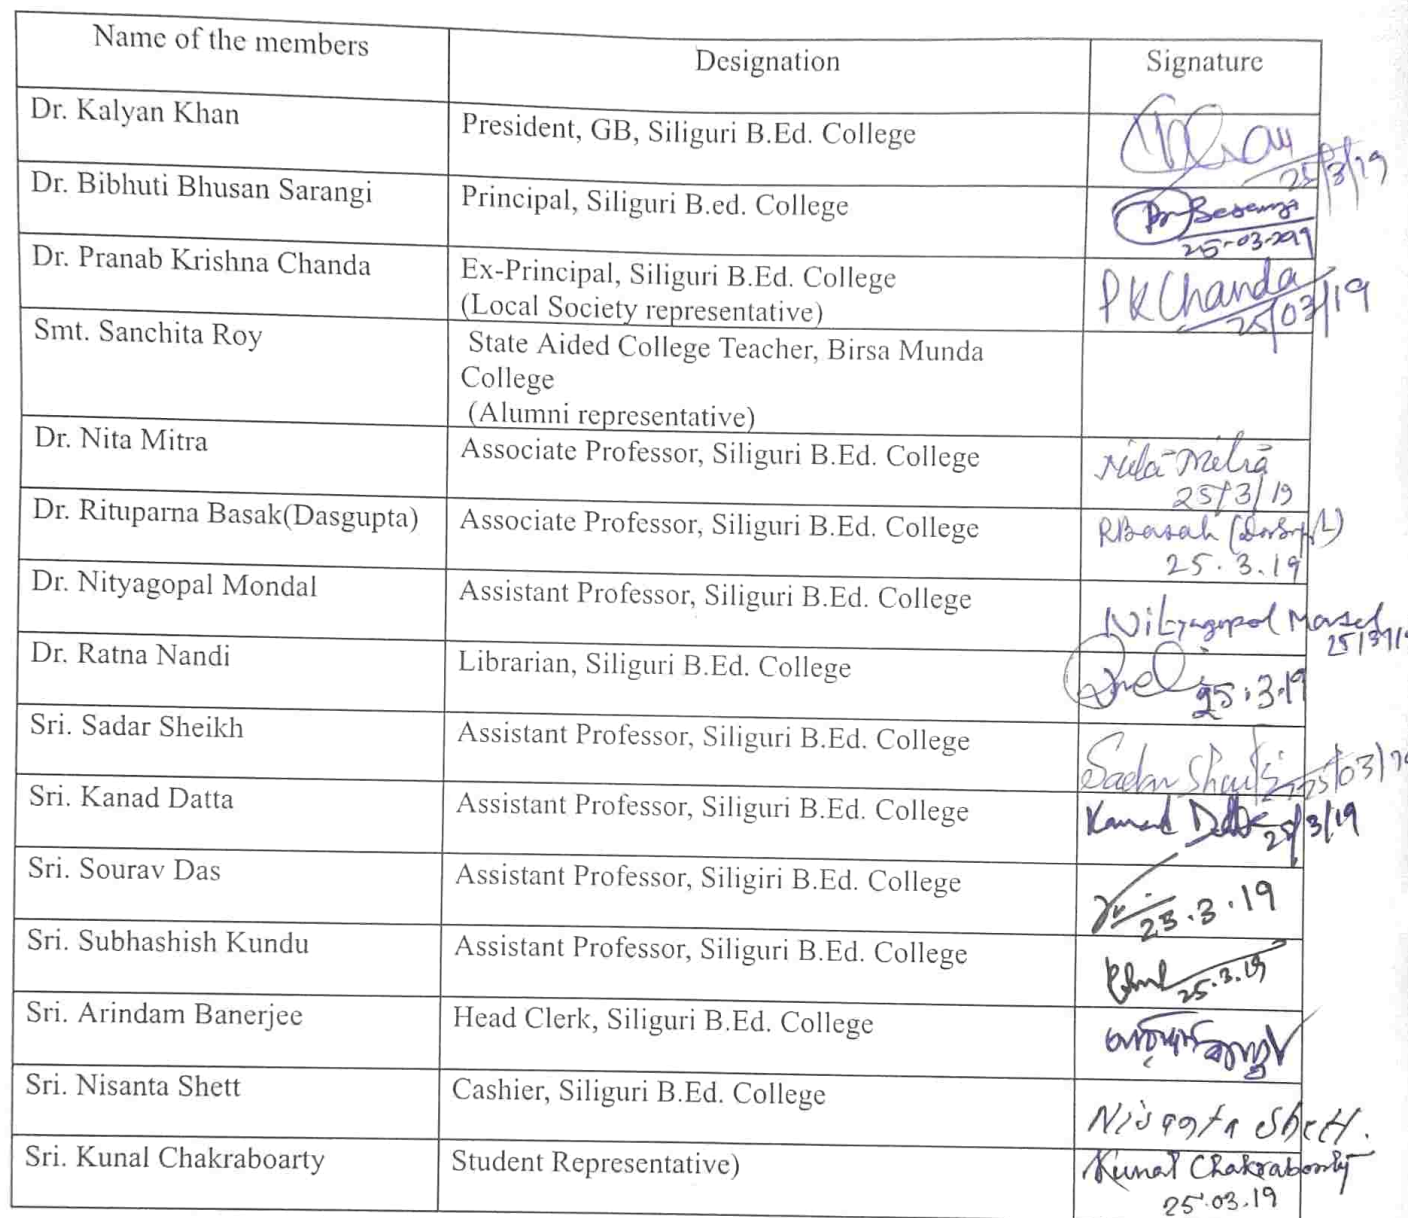 Name of the members Designation Signature
Dr. Kalyan Khan President, GB, Siliguri B.Ed. College
25/3/19
Dr. Bibhuti Bhusan Sarangi Principal, Siliguri B.ed. College
25-03-2019
Dr. Pranab Krishna Chanda Ex-Principal, Siliguri B.Ed. College PK Chanda
(Local Society representative) 25/03/19
Smt. Sanchita Roy State Aided College Teacher, Birsa Munda
College
(Alumni representative)
Dr. Nita Mitra Associate Professor, Siliguri B.Ed. College Nita Mitra
25/3/19
Dr. Rituparna Basak(Dasgupta) Associate Professor, Siliguri B.Ed. College RBasak
25.3.19
Dr. Nityagopal Mondal Assistant Professor, Siliguri B.Ed. College Nityagopal Mondal
Dr. Ratna Nandi Librarian, Siliguri B.Ed. College
25.3.19
Sri. Sadar Sheikh Assistant Professor, Siliguri B.Ed. College Sadar Sheikh 25/03/19
Sri. Kanad Datta Assistant Professor, Siliguri B.Ed. College Kanad Datta 25/3/19
Sri. Sourav Das Assistant Professor, Siligiri B.Ed. College
25.3.19
Sri. Subhashish Kundu Assistant Professor, Siliguri B.Ed. College
25.3.19
Sri. Arindam Banerjee Head Clerk, Siliguri B.Ed. College
Sri. Nisanta Shett Cashier, Siliguri B.Ed. College Nisanta Shett.
Sri. Kunal Chakraboarty Student Representative) Kunal Chakraborty
25.03.19